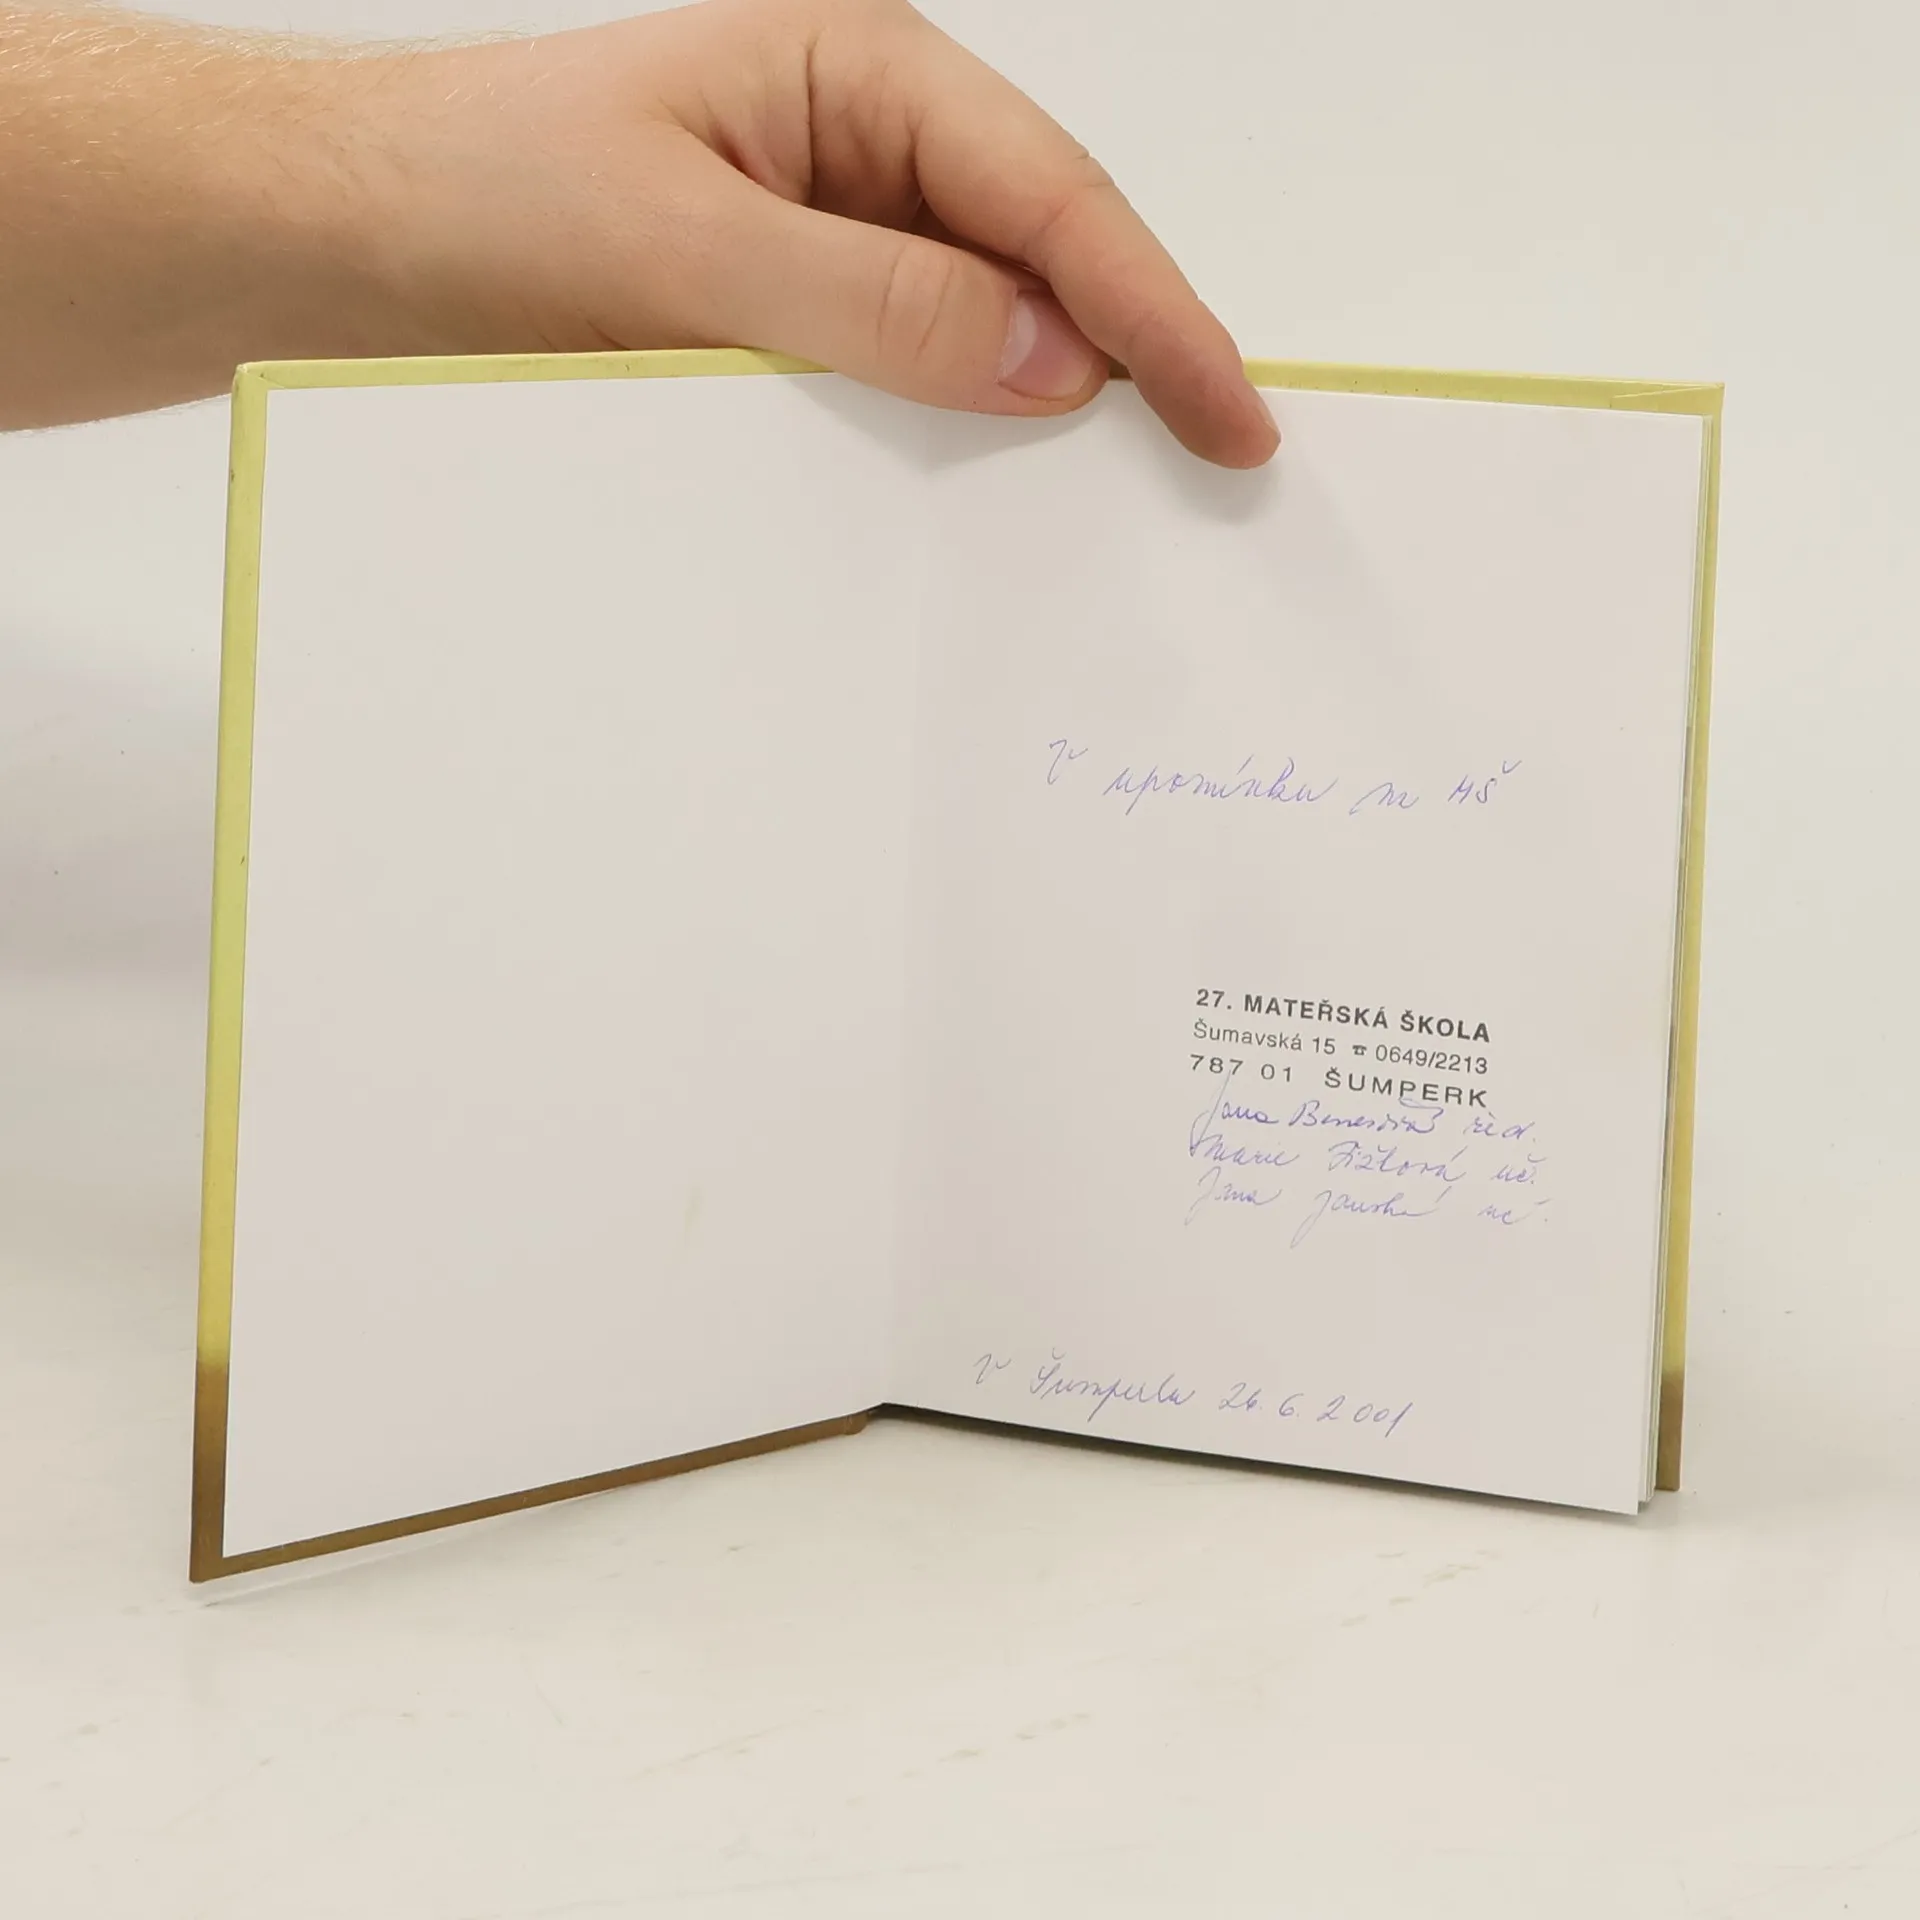 V upomínku na MŠ
27. MATEŘSKÁ ŠKOLA
Šumavská 15 ☎ 0649/2213
787 01 ŠUMPERK
Jana Benešová řed.
Marie uč.
Jana Janská uč.
V Šumperku 26. 6. 2001